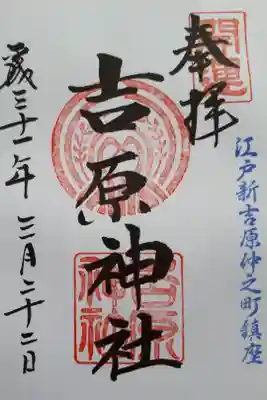 開運
奉拝
江戸新吉原仲之町鎮座
吉原神社
吉原神社
平成三十一年 三月二十二日